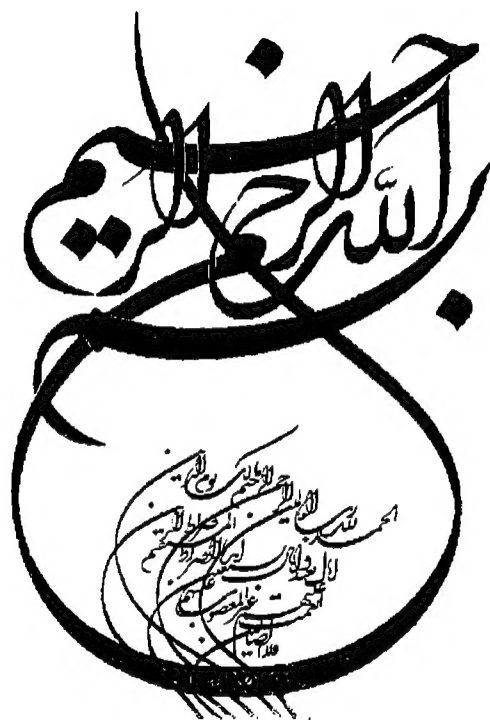 بسم الله الرحمن الرحیم
الحمد لله رب العالمین الرحمن الرحیم مالک یوم الدین
ایاک نعبد وایاک نستعین اهدنا الصراط المستقیم
صراط الذین انعمت علیهم غیر المغضوب علیهم
ولا الضالین